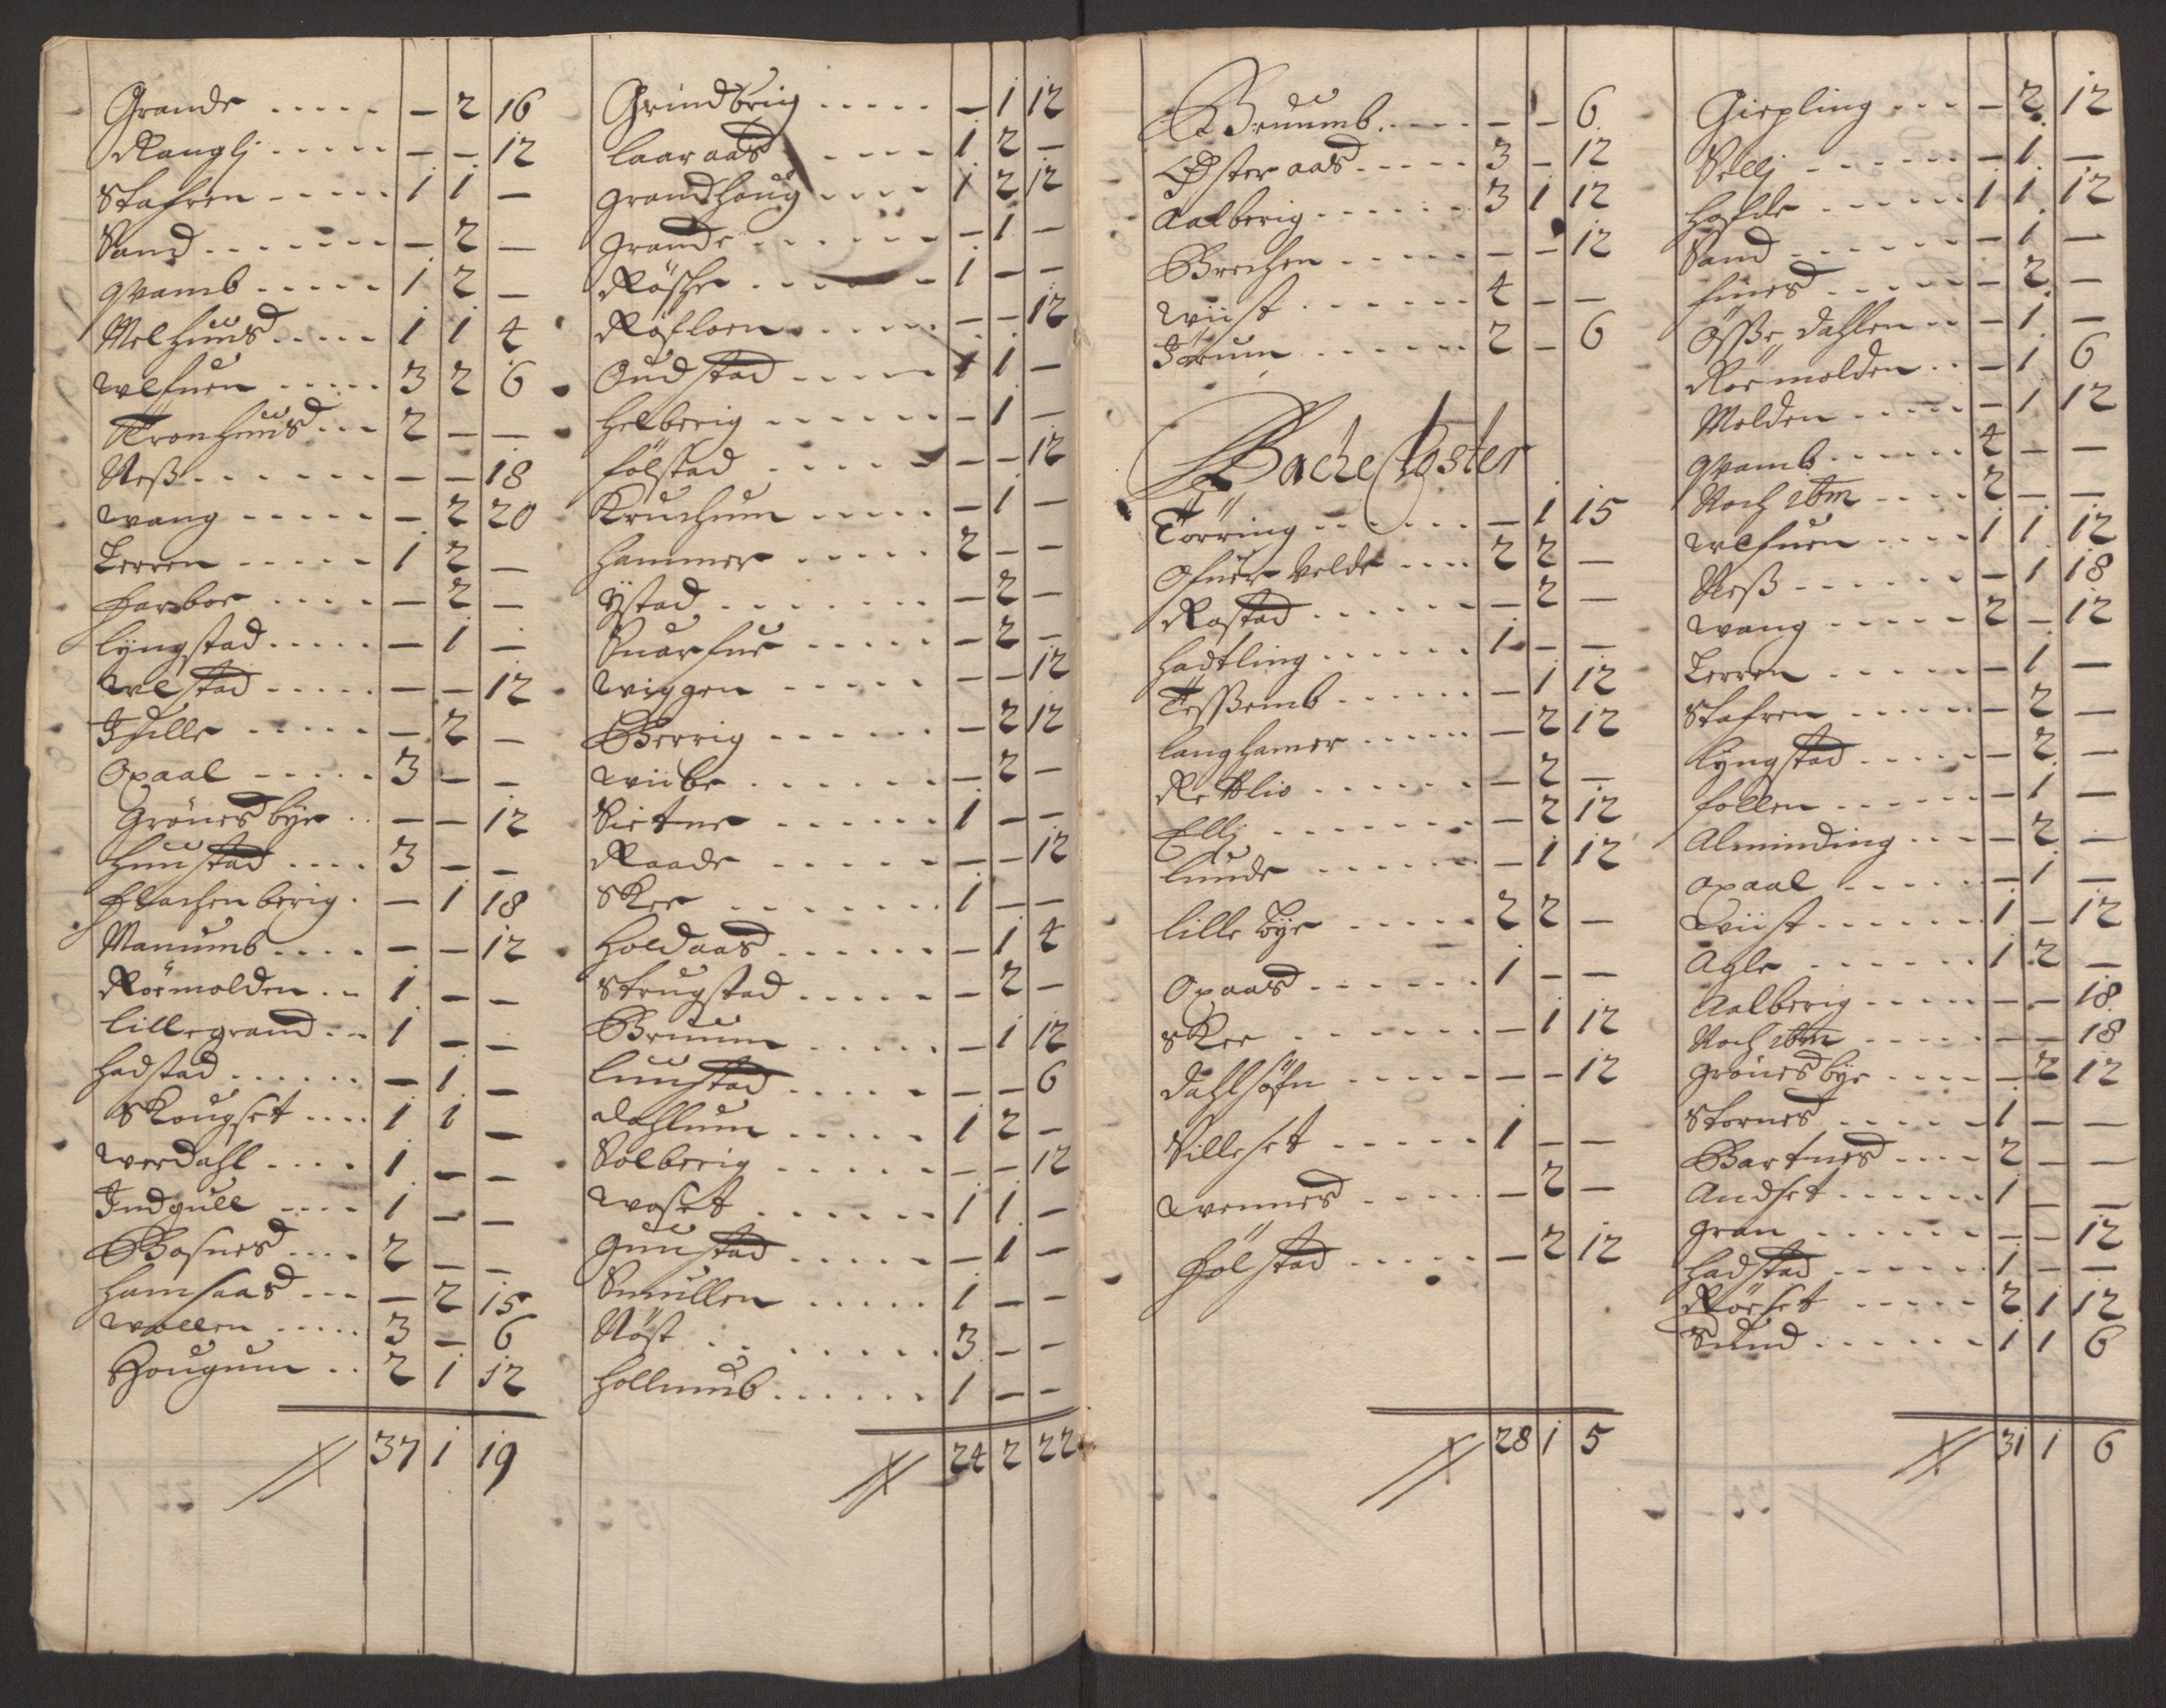 Grande ..... – 2 16
Ranglj ..... – – 12
Stafren ..... 1 1 –
Sand ....... – 2 –
qvamb ..... 1 2 –
Melhuus ..... 1 1 4
wlfuen ..... 3 2 6
Kronhuus ... 2 – –
Neß ...... – – 18
wang ..... – 2 20
Lerren ..... 1 2 –
Farboe .... – 2 –
lyngstad ..... – 1 –
wlstad ..... – – 12
Ihille ..... – 2 –
Opaal ..... 3 – –
Grönesbye .. – – 12
Huustad .... 3 – –
Flachenberig . – 1 18
Manumb .... – – 12
Röemolden .. 1 – –
lillegrand ... 1 – –
hadstad ...... – 1 –
Skougset .... 1 1 –
werdahl .... 1 – –
Indgull .... 1 – –
Bosnes .... 2 – –
hamsaas ... – 2 15
wollen ..... 3 – 6
Hougum .. 2 1 12
37 1 19
Grindbrig ..... – 1 12
laaraas .... 1 2 –
grandhoug .... 1 2 12
grande ...... – 1 –
Rösche ...... 1 – –
Rösloen ..... – – 12
Oudstad ..... 1 1 –
helberig ...... – 1 –
fölstad ..... – – 12
Kruchum ..... – 1 –
hammer ..... 2 – –
Ystad ........ – 2 –
Snarfue ..... – 2 –
wiggen ..... – – 12
Berrig ...... – 2 12
wiibe ....... – 2 –
Sietne ...... 1 – –
Raade ...... – – 12
Skee ........ 1 – –
holdaas ...... – 1 4
Strugstad ..... – 2 –
Bruum ..... – 1 12
luustad ..... – – 6
dahlum ..... 1 2 –
Solberig ...... – – 12
woset ...... 1 1 –
Guustad ..... – 1 –
Smullen ..... 1 – –
Nöst ....... 3 – –
hollumb ...... 1 – –
24 2 22
Bruumb ..... – – 6
Österaas .... 3 – 12
Aalberig ...... 3 1 12
Brechen ..... – – 12
wiist ...... 4 – –
Jörum ...... 2 – 6
Bache Closter
Törring ...... – 1 15
Ofuer velde .... 2 2 –
Rostad ...... – 2 –
hadtling ...... 1 – –
Tessemb ...... – 1 12
langhamer ..... – 2 12
Rettlio ...... – 2 –
Ellj ....... – 2 12
lunde ...... – 1 12
lille bye ..... 2 2 –
Opaas ...... 1 – –
Skee ....... – 1 12
dahlsöfn ..... – – 12
Silleset ..... 1 – –
wennes ..... – 2 –
Hölstad ..... – 2 12
28 1 5
Giepling ... – 2 12
Sellj ...... – 1 –
hofde ...... 1 1 12
Sand ...... – 1 –
fines ..... – 2 –
Össe, dahlen .. – 1 –
Röemolden .. – 1 6
Molden ..... – 1 12
qvamb ...... 4 – –
Noch ibm .... 2 – –
wlfuen .... 1 1 12
Neß ...... – 1 18
wang ..... 2 – 12
Lerren ..... – 1 –
Stafren ..... – 2 –
lyngstad ..... – 2 –
follen ...... – 1 –
Alminding ... – 2 –
opaal ..... – 1 –
Wiist ...... 1 – 12
Agle ...... 1 2 –
Aalberig ..... – – 18
Noch ibm ..... – – 18
grönesbye .... – 2 12
Stornes ..... 1 – –
Bartnes .... 2 – –
Andset ...... 1 – –
gran ...... – – 12
hadstad ...... 1 – –
Röeset ..... 2 1 12
Sund ...... 1 1 6
31 1 6